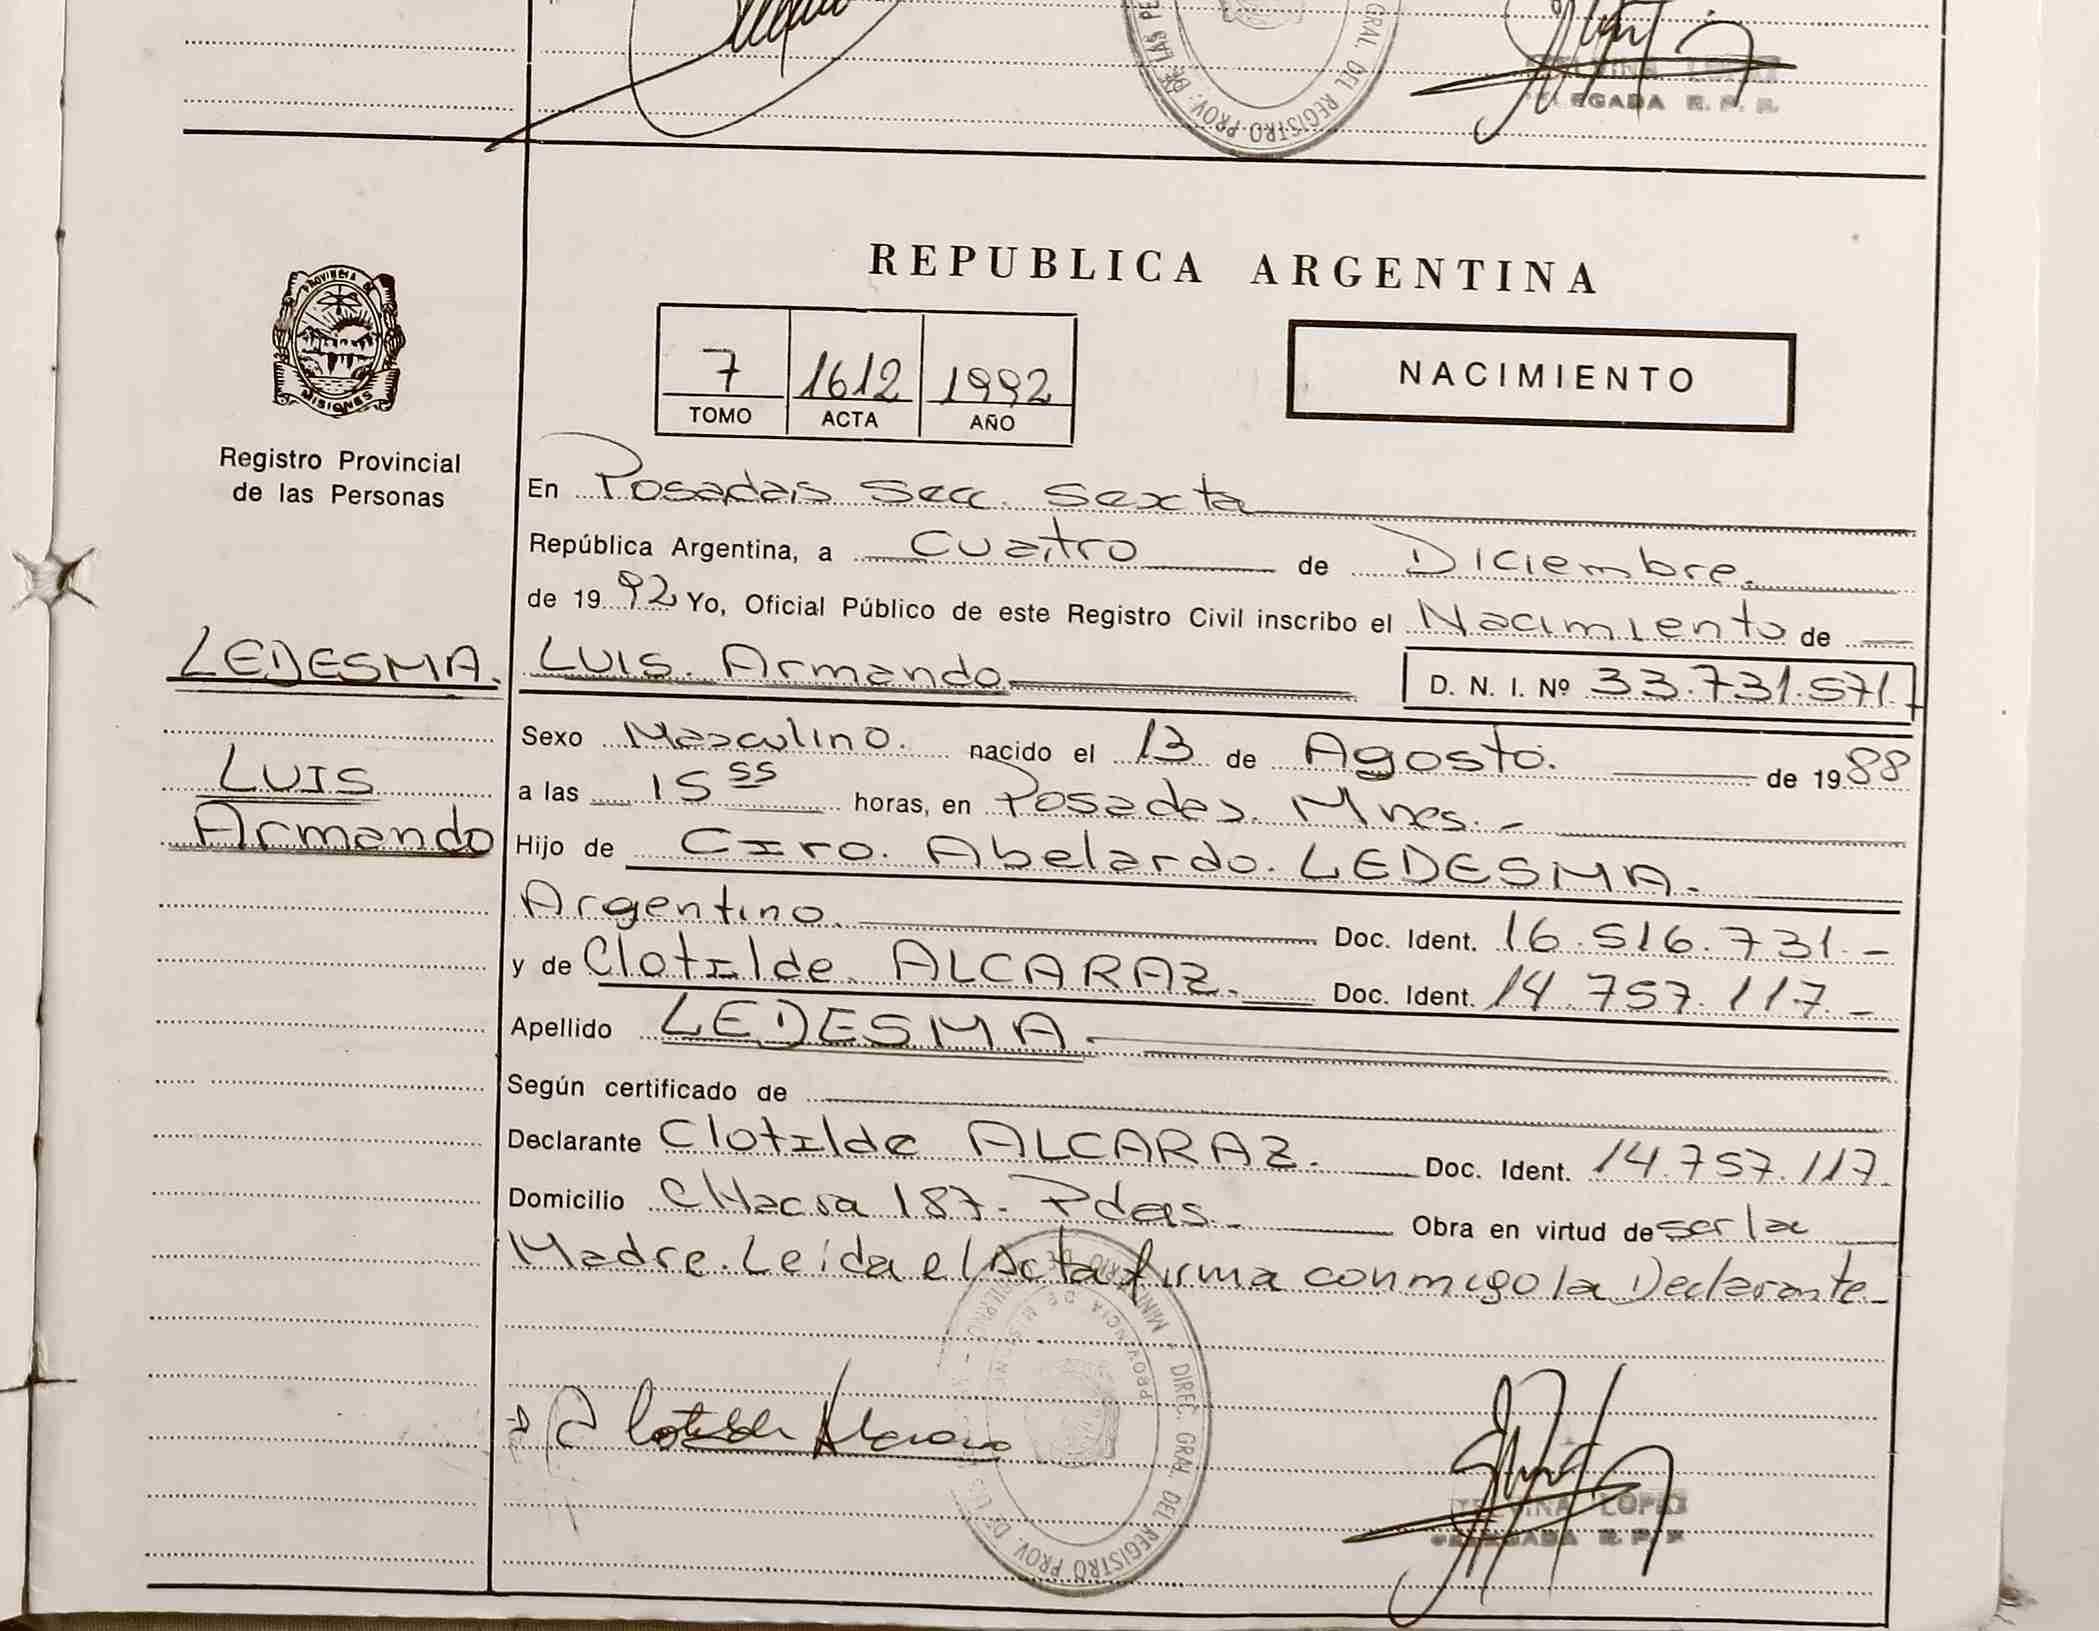 GRAL. DEL REGISTRO PROV. DE LAS PE
LOPEZ
REPUBLICA ARGENTINA
PROVINCIA DE
MISIONES
7 1612 1992
TOMO ACTA AÑO
NACIMIENTO
Registro Provincial
de las Personas
En Posadas Secc. Sexta
República Argentina, a Cuatro de Diciembre.
de 1992 Yo, Oficial Público de este Registro Civil inscribo el Nacimiento de
LEDESMA. LUIS. Armando D. N. I. Nº 33.731.571.
Sexo Masculino. nacido el 13 de Agosto. de 1988
LUIS
a las 15 55 horas, en Posadas. Mnes. -
Armando
Hijo de Ciro. Abelardo. LEDESMA.
Argentino. Doc. Ident. 16.516.731.-
y de Clotilde. ALCARAZ. Doc. Ident. 14.757.117.-
Apellido LEDESMA.
Según certificado de
Declarante Clotilde ALCARAZ. Doc. Ident. 14.757.117.
Domicilio CHacra 187. Pdas. Obra en virtud de ser la
Madre. Leida el Acta firma conmigo la Declarante
Clotilde Alcaraz
DIREC. GRAL. DEL REGISTRO PROV. DE LAS
LOPEZ